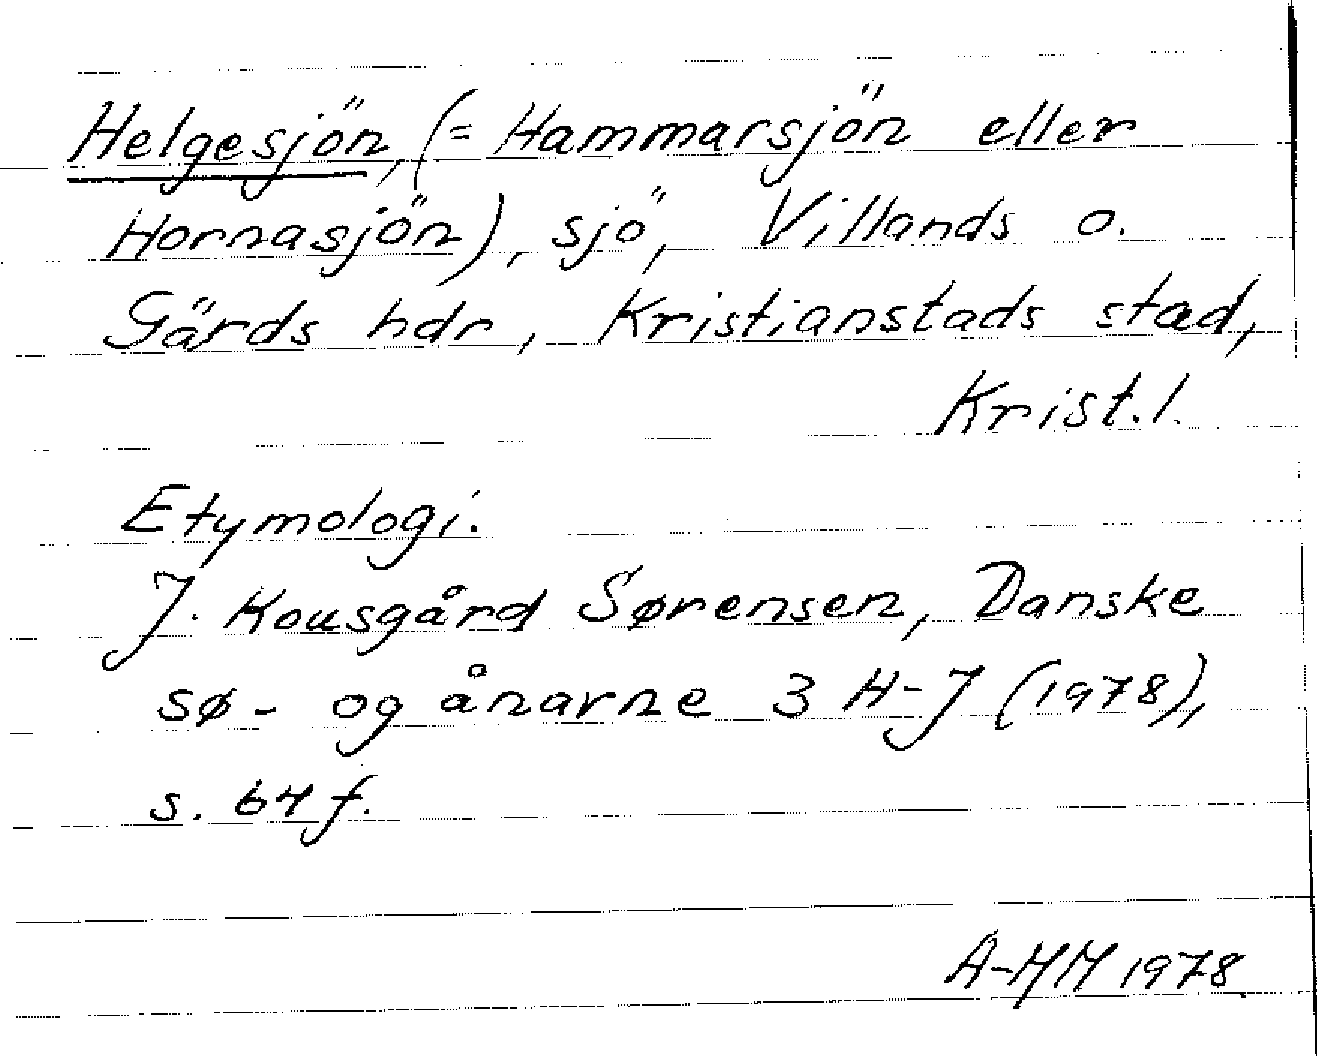 Helgesjön, (= Hammarsjön eller
Hornasjön), sjö, Villands o.
Gärds hdr, Kristianstads stad,
Krist. l.
Etymologi.
J. Kousgård Sørensen, Danske
sø- og ånavne 3 H-J (1978),
s. 64 f.
A-MM 1978